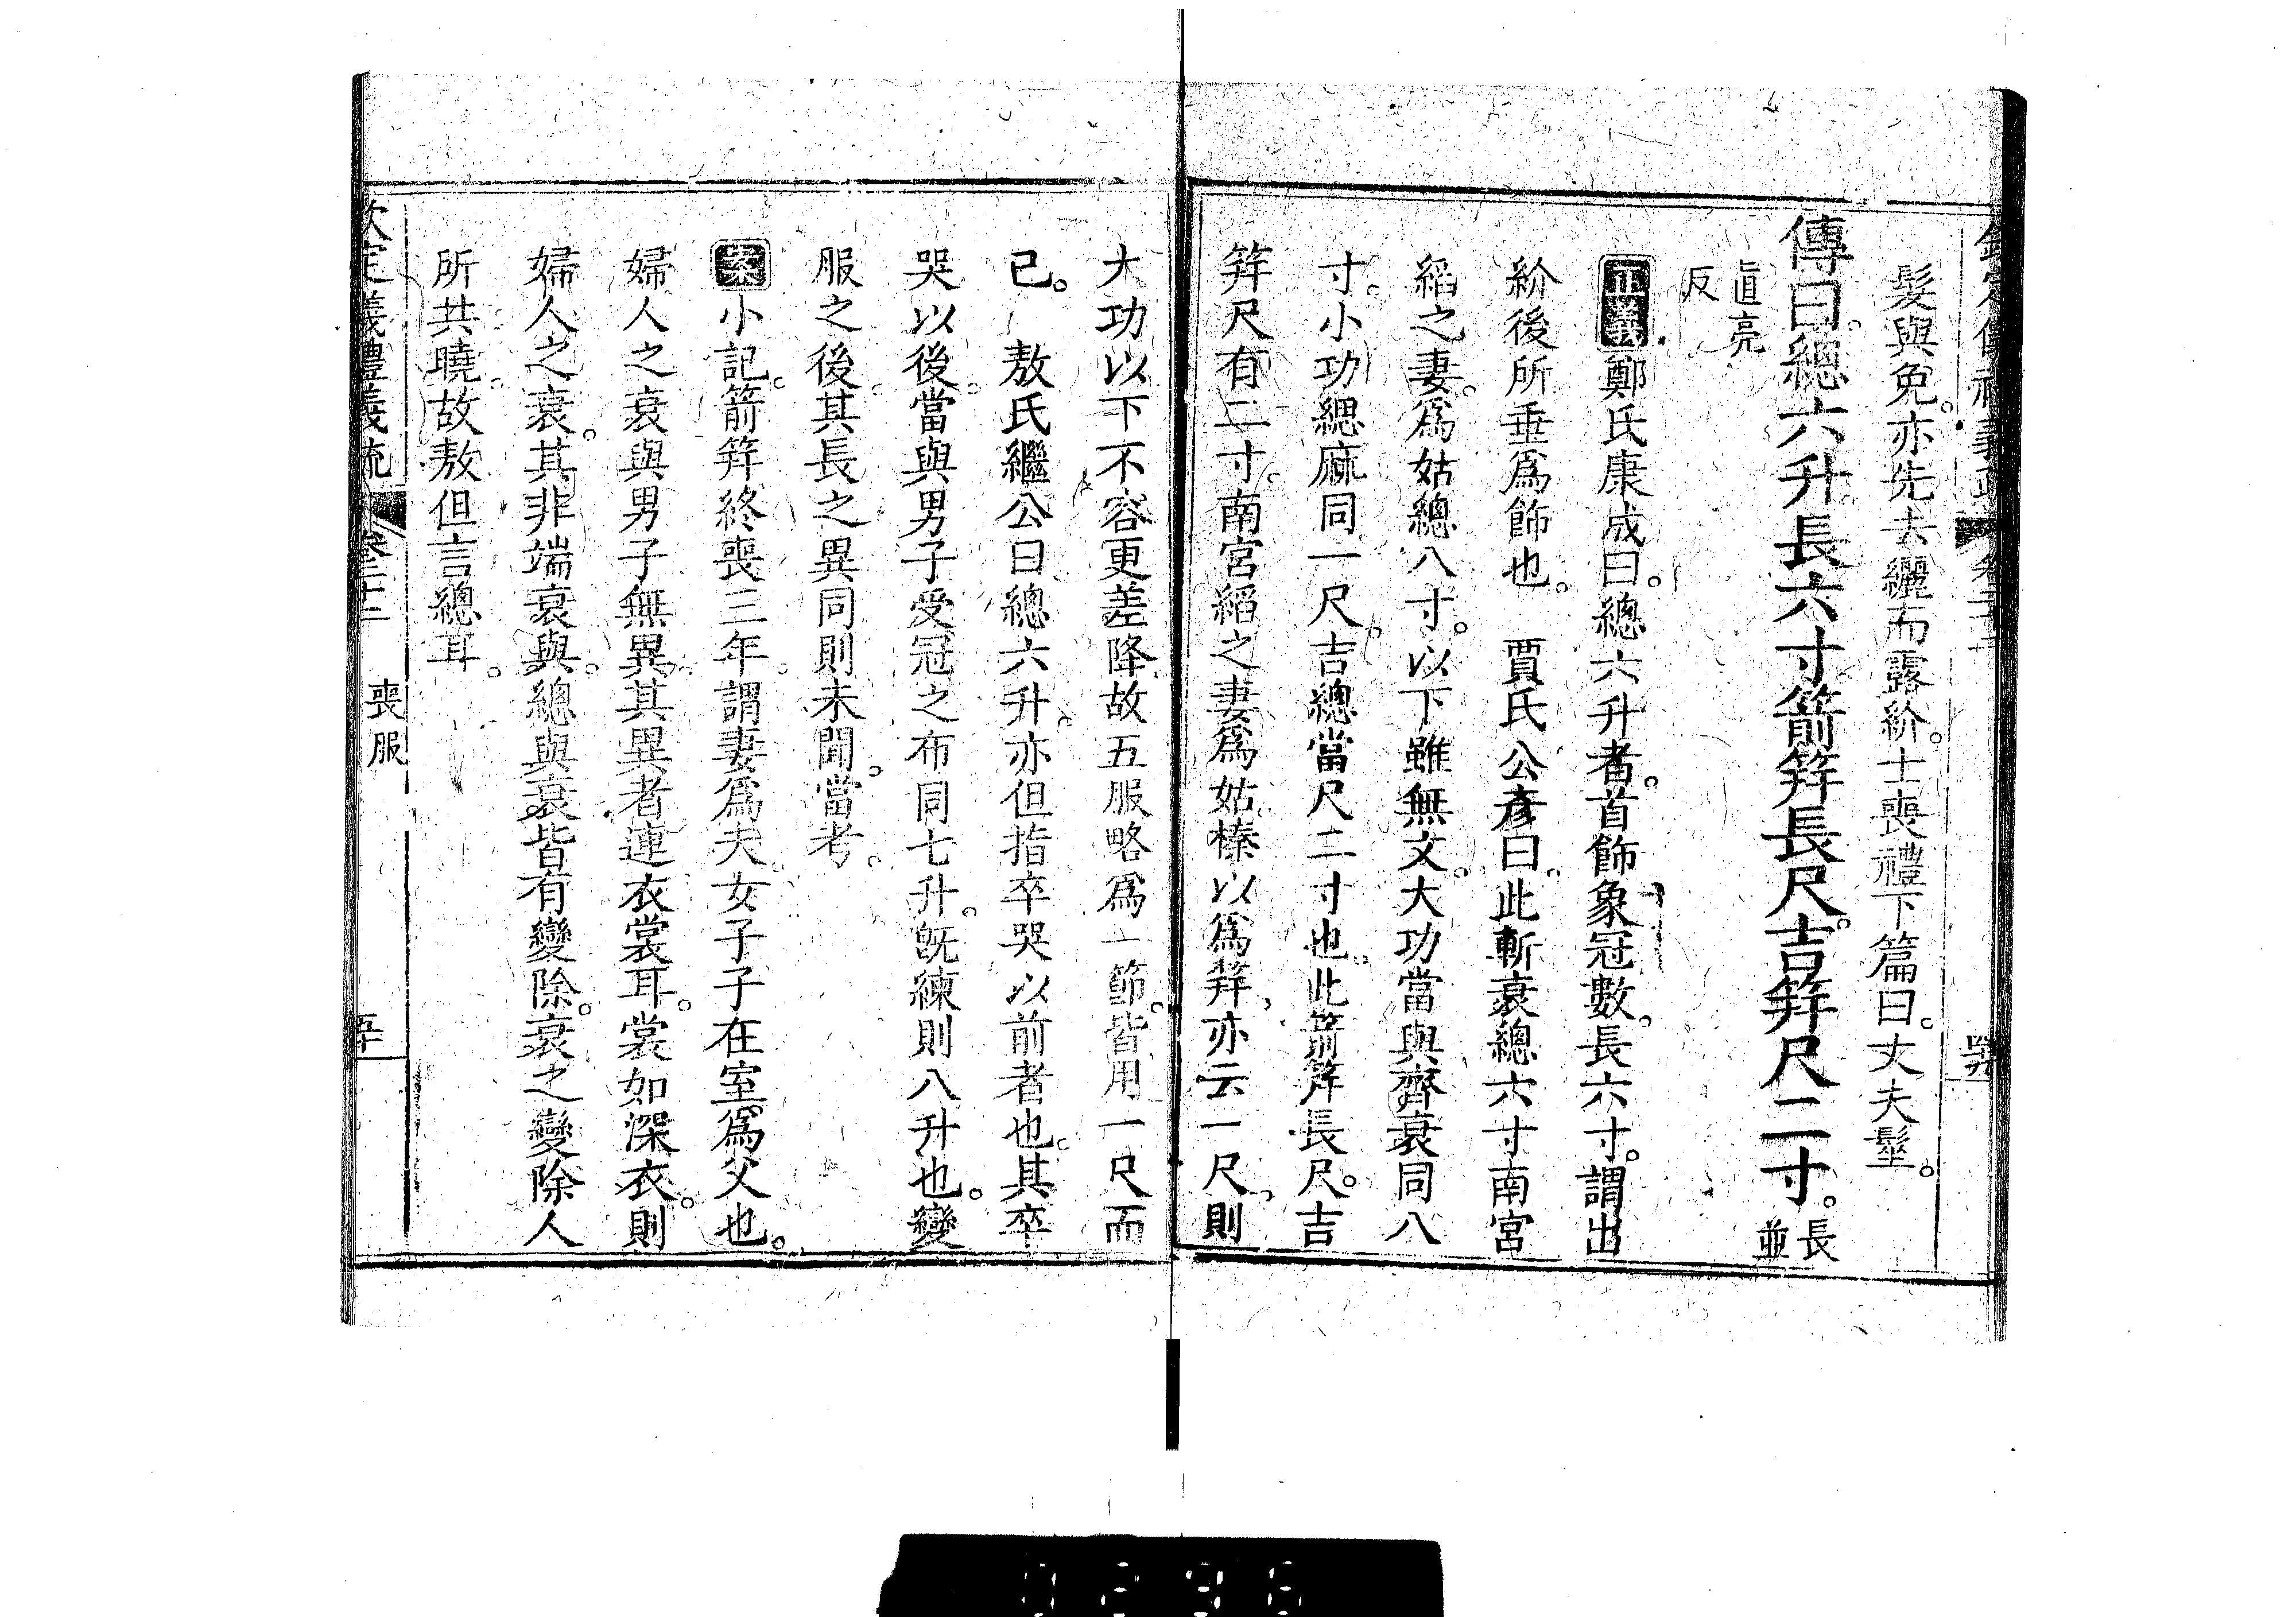 髮與免。亦先去纚而露紒。士喪禮下篇曰。丈夫髽。
傳曰。總六升。長六寸。箭筓長尺。吉筓尺二寸。長並
眞亮反
正義鄭氏康成曰。總六升者。首飾象冠數。長六寸。謂出
紒後所垂爲飾也。 賈氏公彥曰。此斬衰總六寸南宮
縚之妻。爲姑總八寸。以下雖無文。大功當與齊衰同八
寸。小功緦麻同一尺。吉總當尺二寸也。此箭筓長尺。吉
筓尺有二寸。南宮縚之妻爲姑榛以爲筓。亦云一尺。則
大功以下不容更差降。故五服略爲一節。皆用一尺而
已。 敖氏繼公曰總六升。亦但指卒哭以前者也。其卒
哭以後。當與男子受冠之布同七升。既練則八升也。變
服之後。其長之異同則未聞。當考。
案小記。箭筓終喪三年。謂妻爲夫。女子子在室。爲父也。
婦人之衰與男子無異。其異者連衣裳耳。裳如深衣。則
婦人之衰。其非端衰與。總與衰皆有變除。衰之變除人
所共曉。故敖但言總耳。
欽定儀禮義疏 卷二十二 喪服 五十